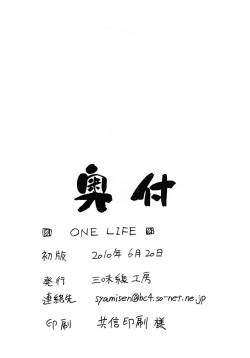 奥付
ONE LIFE
初版 2010年6月20日
発行 三味線工房
連絡先 syamisen@bc4.so-net.ne.jp
印刷 共信印刷 様